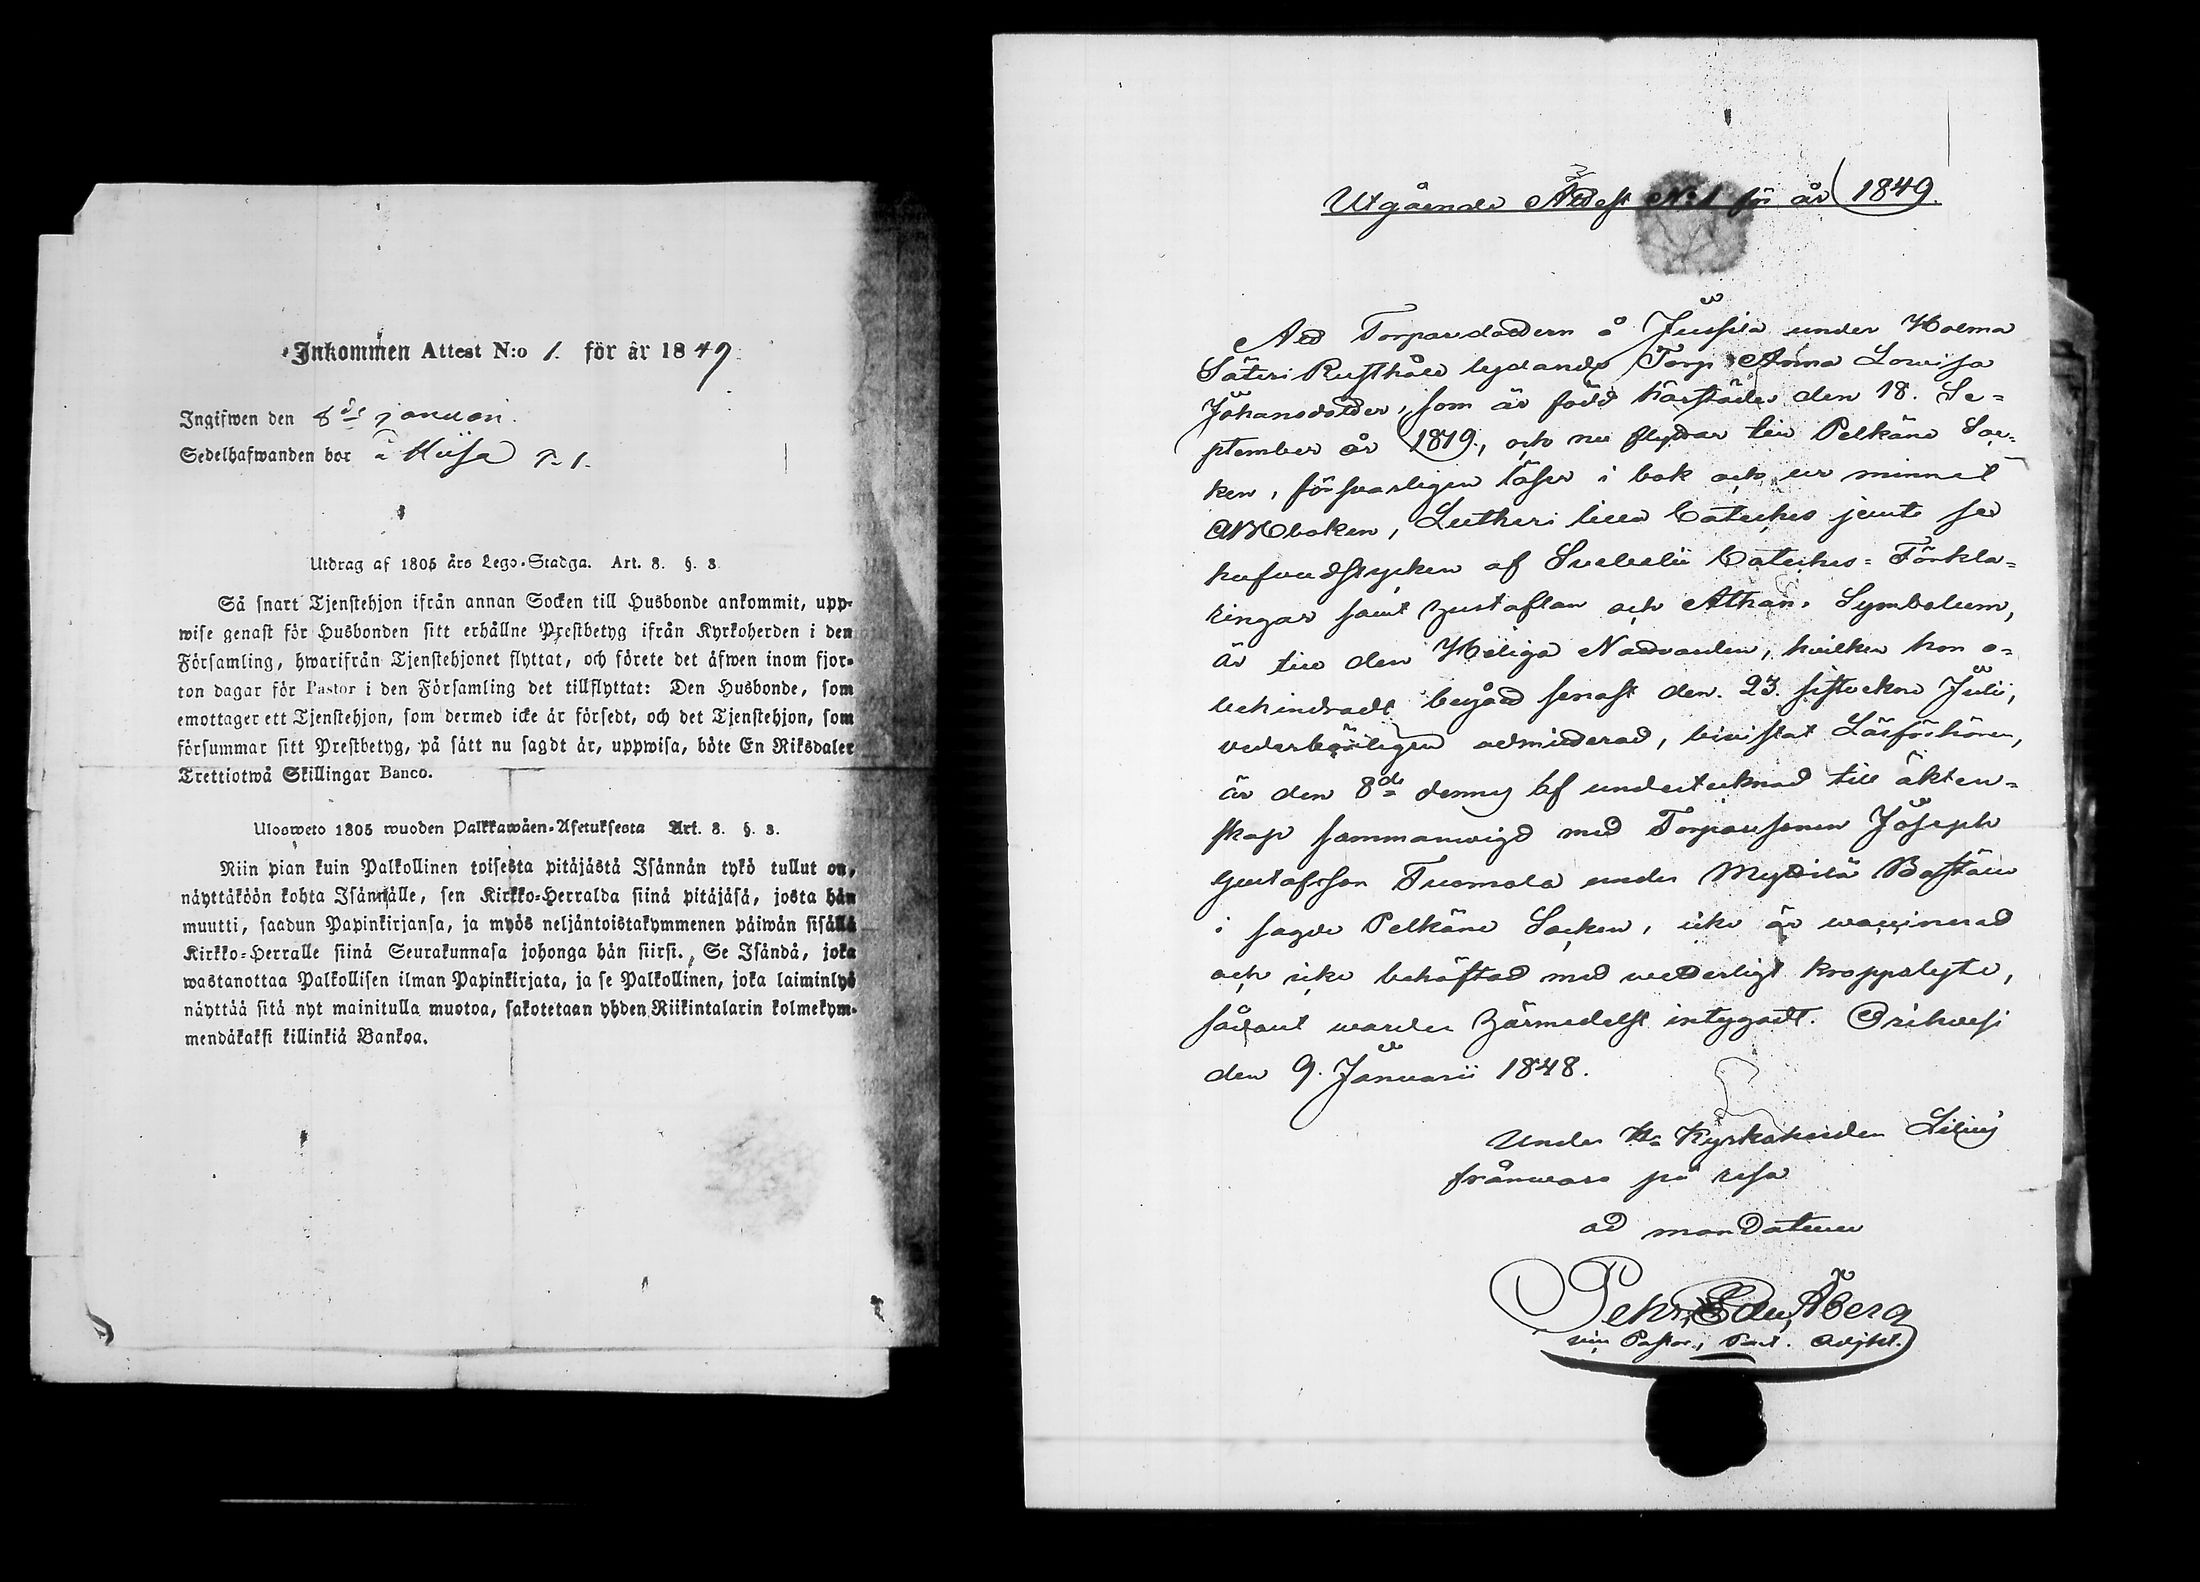 Inkommen Attest N:o 1. för år 1849
Ingifwen den 8de januari.
Sedelhafwanden bor å
Utdrag af 1805 års Lego-Stadga. Art. 8. §. 3
Så snart Tjenstehjon ifrån annan Socken till Husbonde ankommit, upp-
wise genast för Husbonden sitt erhållne Prestbetyg ifrån Kyrkoherden i den
Församling, hwarifrån Tjenstehjonet flyttat, och förete det äfwen inom fjor-
ton dagar för Pastor i den Församling det tillflyttat: Den Husbonde, som
emottager ett Tjenstehjon, som dermed icke är försedt, och det Tjenstehjon, som
försummar sitt Prestbetyg, på sätt nu sagdt är, uppwisa, böte En Riksdaler
Trettiotwå Skillingar Banco.
Ulosweto 1805 wuoden Palkkawäen-Asetuksesta Art. 8. §. 3.
Niin pian kuin Palkollinen toisesta pitäjästä Isännän tykö tullut on,
näyttäköön kohta Isännälle, sen Kirkko-Herralda siinä pitäjäsä, josta hän
muutti, saadun Papinkirjansa, ja myös neljäntoistakymmenen päiwän sisällä
Kirkko-Herralle siinä Seurakunnasa johonga hän siirsi. Se Isändä, joka
wastanottaa Palkollisen ilman Papinkirjata, ja se Palkollinen, joka laiminlyö
näyttää sitä nyt mainitulla muotoa, sakotetaan yhden Riikintalarin kolmekym-
mendäkaksi killinkiä Bankoa.
Utgående Attest No 1 för år 1849.
Att Torparedottern å Jussila under Holma
Säteri Rusthåll lydande Torp Anna Lovisa
Johansdotter, som är född härstädes den 18. Se-
ptember år 1819, och nu flyttar till Pelkäne Soc-
ken, försvarligen läser i bok och ur minnet
ABCboken, Lutheri lilla Cateches jemte
hufvudstycken af Svebelii Cateches-Förkla-
ringar samt Hustaflan och Athan. Symbolum,
är till den Heliga Nattvarden, hvilken hon o-
behindradt begådt senast den 23. sistvekne Julii,
vederbörligen admitterad, bivistat Läsförhören,
är den 8de dennes af undertecknad till äkten-
skap sammanvigd med Torparesonen Joseph
Gustafsson Tuomola under Myttilä Boställe
i sagde Pelkäne Socken, icke är vaccinerad
och icke behäftad med vederligt kroppslyte,
sådant warder härmedelst intygadt. Orihvesi
den 9. Januarii 1848.
Under Hr Kyrkoherden Lilius
frånvaro på resa
ad mandatum
Pehr Edv. Åberg
vice Pastor, Past. Adjkt.